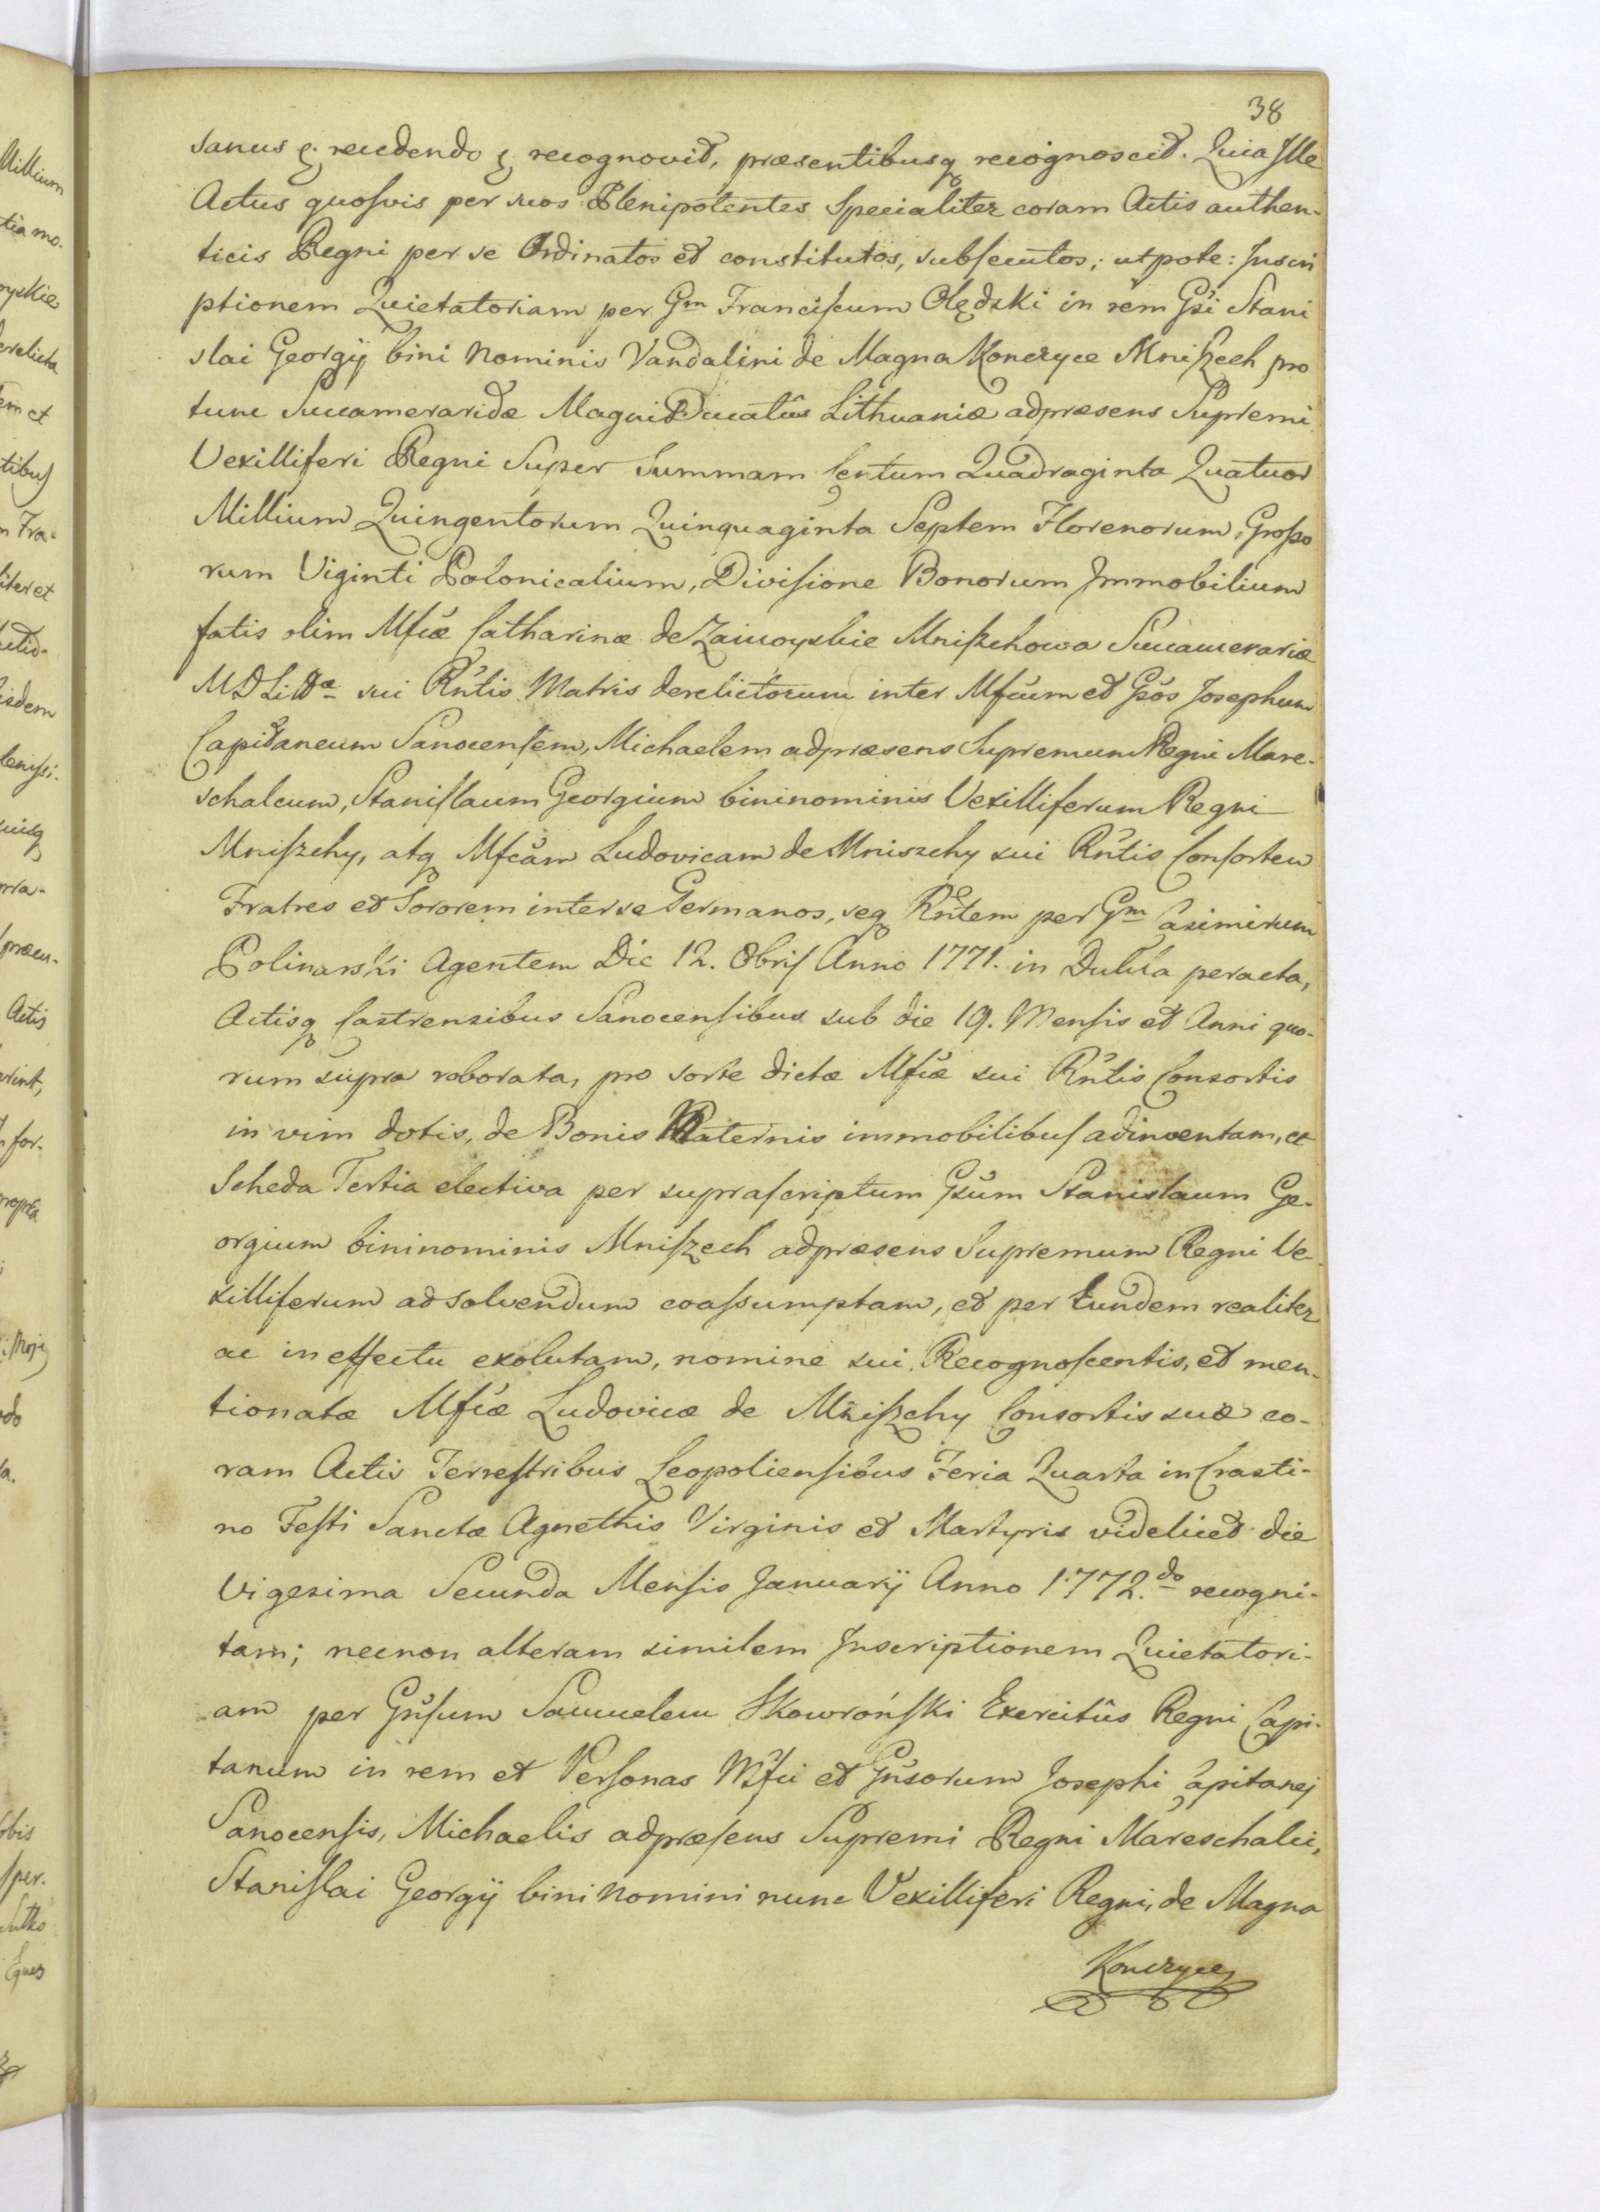 38
sanus &. recedendo & recognovit, præsentibusq recognoscit. Quia Ille
Actus quosvis per suos Plenipotentes Specialiter coram Actis authen-
ticis Regni per se Ordinatos et constitutos, subsecutos; utpote: Inscri
ptionem Quietatoriam per Gm Franciscum Olędzki in rem Gsi Stani
slai Georgij bini Nominis Vandalini de Magna Konczyce Mniszech pro
tunc Succameraridæ Magni Ducatûs Lithuaniæ adpræsens Supremi
Vexilliferi Regni Super Summam Centum Quadraginta Quatuor
Millium Quingentorum Quinquaginta Septem Florenorum, Grosso
rum Viginti Polonicalium, Divisione Bonorum Immobilium
fatis olim Mfcæ Catharinæ de Zamoyskie Mniszchowa Succamerariæ
MDLittæ sui Rntis Matris derelictorum inter Mfcum et Gsos Josephum
Capitaneum Sanocensem, Michaelem adpræsens Supremum Regni Mare-
schalcum, Stanislaum Georgium bininominis Vexilliferum Regni
Mniszchy, atq Mfcam Ludovicam de Mniszchy sui Rntis Consortem
Fratres et Sororem inter se Germanos, seq Rntem per Gm Casimirum
Polinarski Agentem Die 12. 8bris Anno 1771. in Dukla peracta,
Actisq Castrensibus Sanocensibus sub die 19. Mensis et Anni quo-
rum supra roborata, pro sorte dictæ Mfcæ sui Rntis Consortis
in vim dotis, de Bonis Maternis immobilibus adinventam, et
Scheda Tertia electiva per suprascriptum Gsum Stanislaum Ge-
orgium bininominis Mniszech adpræsens Supremum Regni Ve-
xilliferum ad solvendum coassumptam, et per Eundem realiter
ac in effectu exolutam, nomine sui Recognoscentis, et men-
tionatæ Mfcæ Ludovicæ de Mniszchy Consortis suæ co-
ram Actis Terrestribus Leopoliensibus Feria Quarta in Crasti-
no Festi Sanctæ Agnethis Virginis et Martyris videlicet die
Vigesima Secunda Mensis Januarij Anno 1772.do recogni-
tam; necnon alteram similem Inscriptionem Quietatori-
am per Gnsum Samuelem Skowroński Exercitûs Regni Capi-
taneum in rem et Personas Mfci et Gnsorum Josephi Capitanei
Sanocensis, Michaelis adpræsens Supremi Regni Mareschalci,
Stanislai Georgij bini Nomini nunc Vexilliferi Regni, de Magna
Konczyce